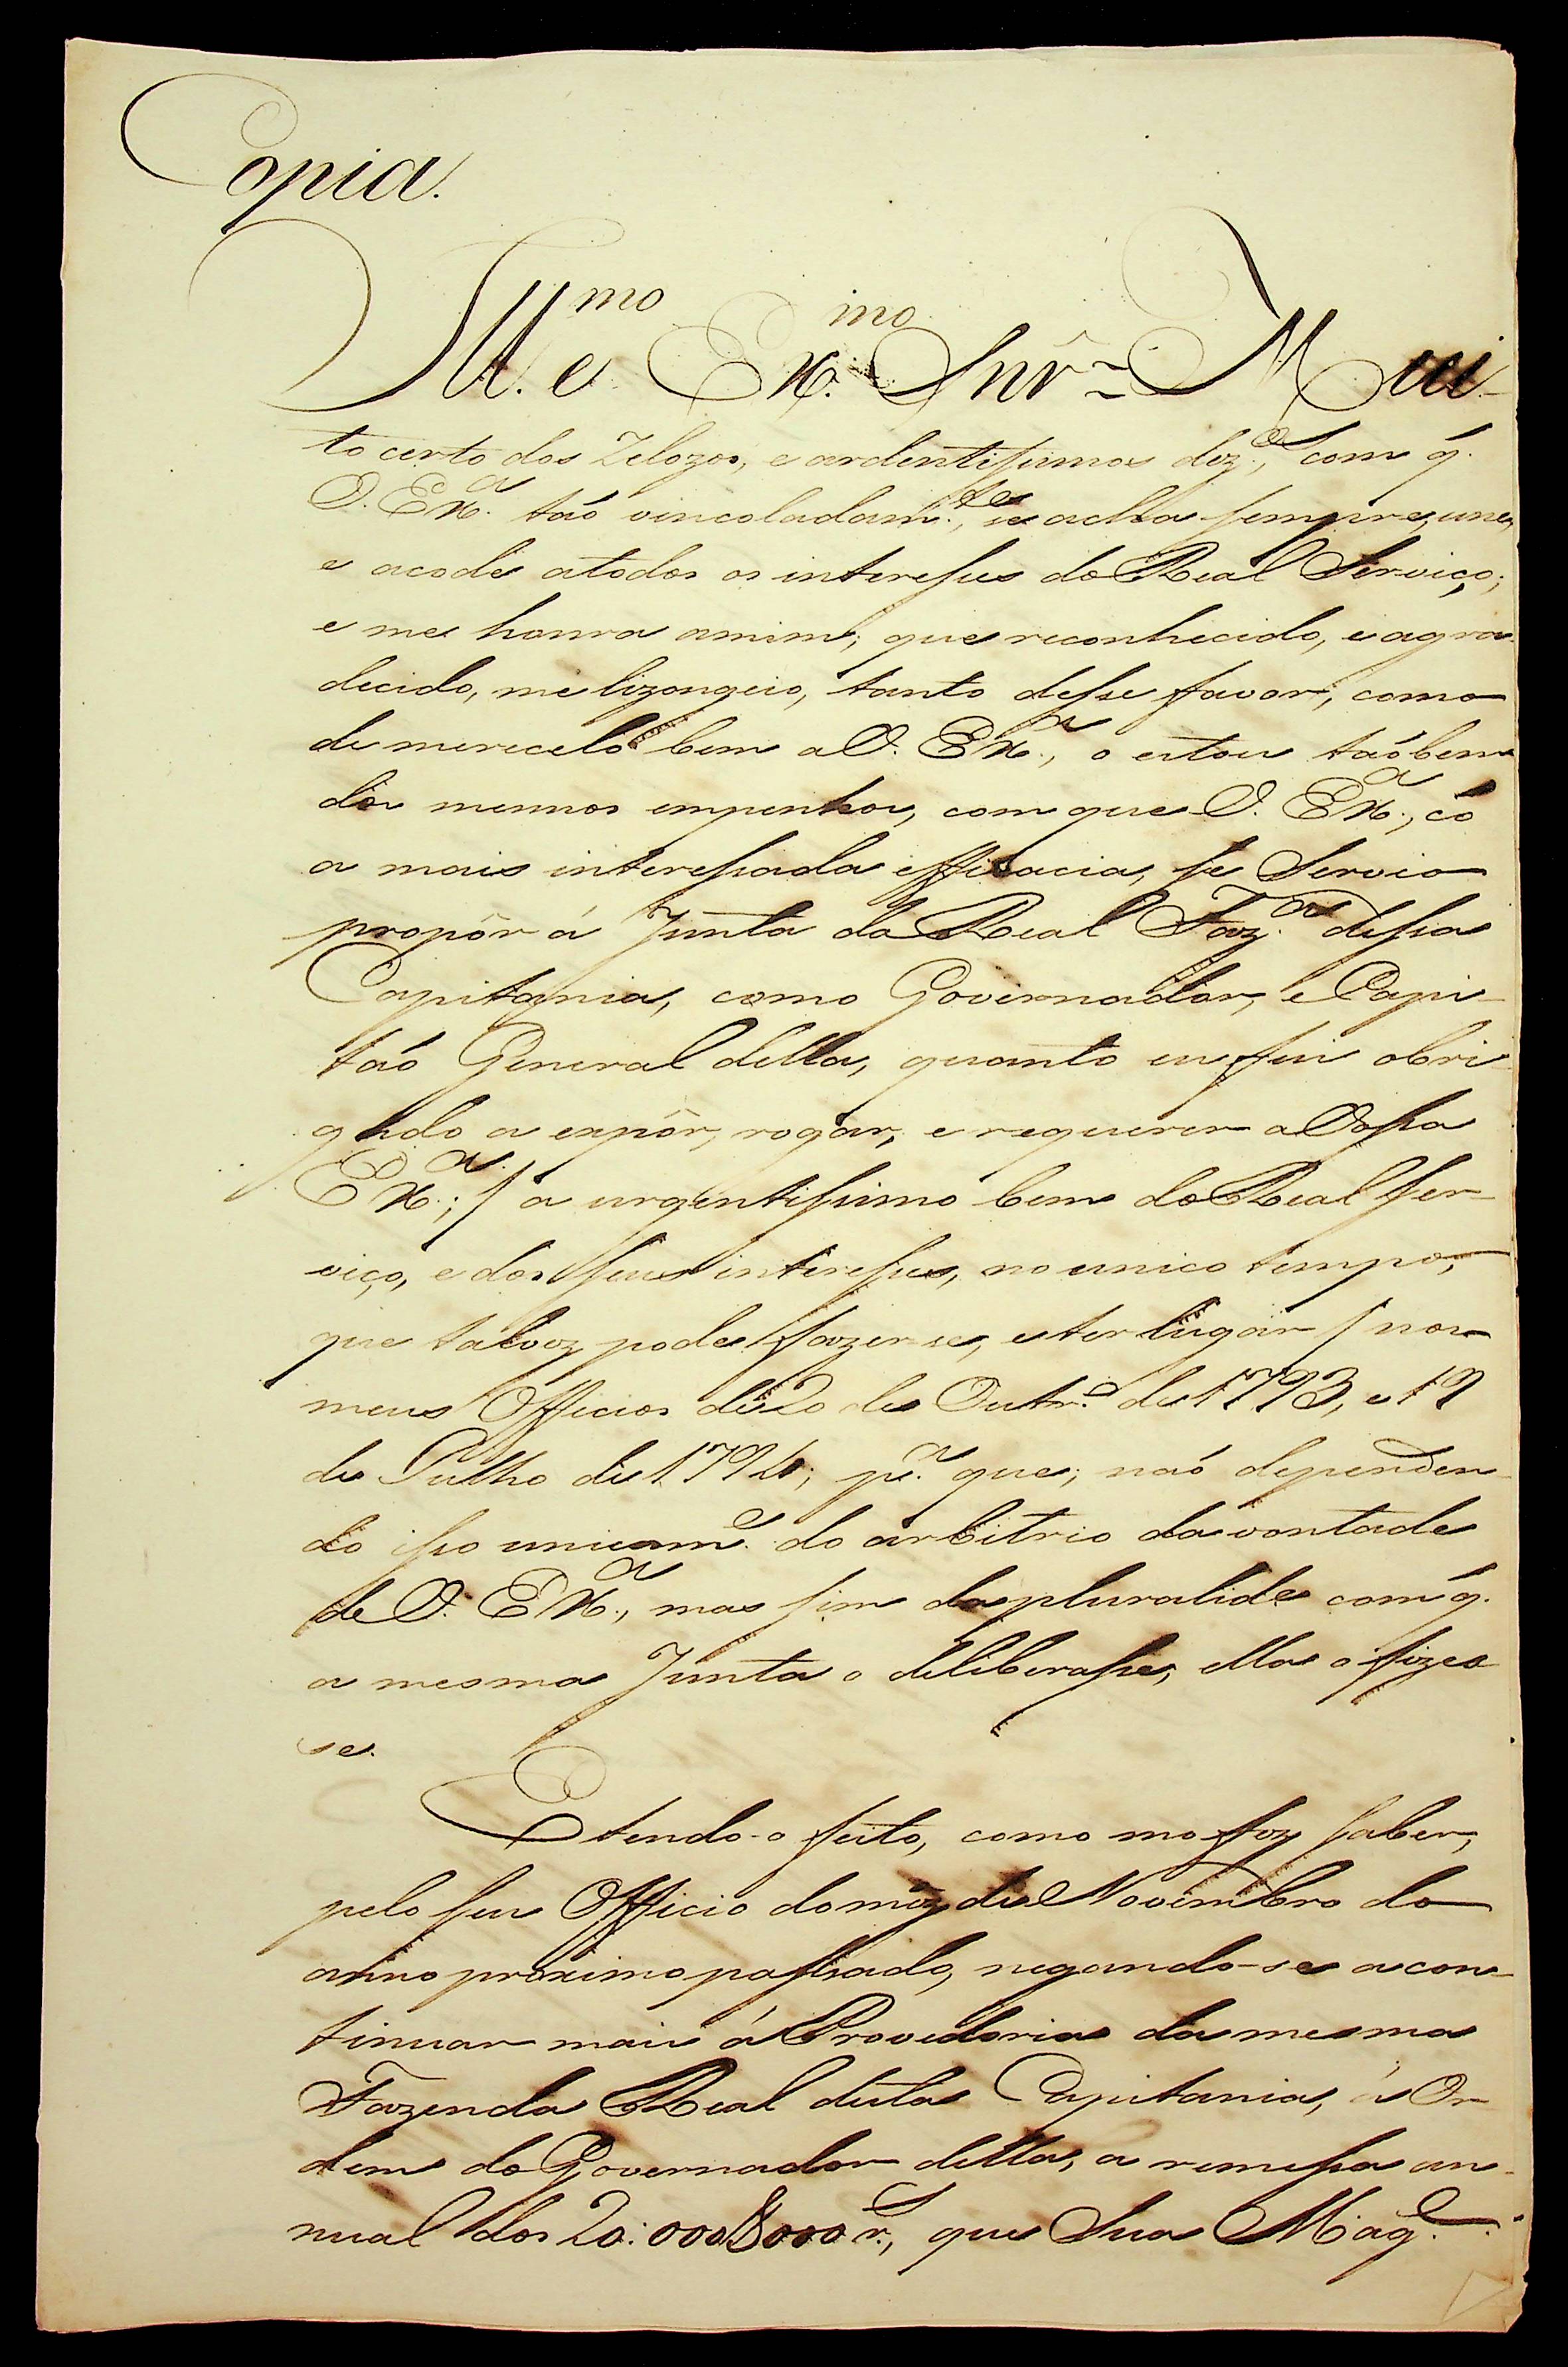 Copia.
Ill.mo e Ex.mo Snr̂ = Mui-
to certo dos Zelozos, e ardentissimos dez.os, com q̃.
V. Ex.a taõ vincoladam.te, se acha sempre, une,
e acode atodos os interesses do Real Serviço;
e me honra amim; que reconhecido, e agra-
decido, me lizongeio, tanto desse favor, como
de merecelo bem a V. Ex.a, o estou taõbem
dos mesmos empenhos, com que V. Ex.a, cõ
a mais interessada efficacia, se Servio
propôr á Junta da Real Faz.a dessa
Capitania, como Governador, e Capi-
taõ General della, quanto eu fui obri-
gado a expôr, rogar, e requerer a Vossa
Ex.a; / a urgentissimo bem do Real ser-
viço, e dos seus interesses, no unico tempo,
que talvez pode fazer-se, e ter lugar / nos
meus Officios de 20 de Outr.o de 1793, e 19
de Julho de 1794; p.a que; naõ dependen-
do isso unicam.e do arbitrio da vontade
de V. Ex.a, mas sim da pluralide com q̃.
a mesma Junta o deliberasse, ella o fizes-
se.
E tendo-o feito, como mo faz saber,
pelo seu Officio do mez de Novembro do
anno proximo passado, negando-se a con-
tinuar mais á Provedoria da mesma
Fazenda Real desta Capitania, á Or-
dem do Governador della, a remessa an-
nual dos 20:000$000 r.s, que Sua Mag.e